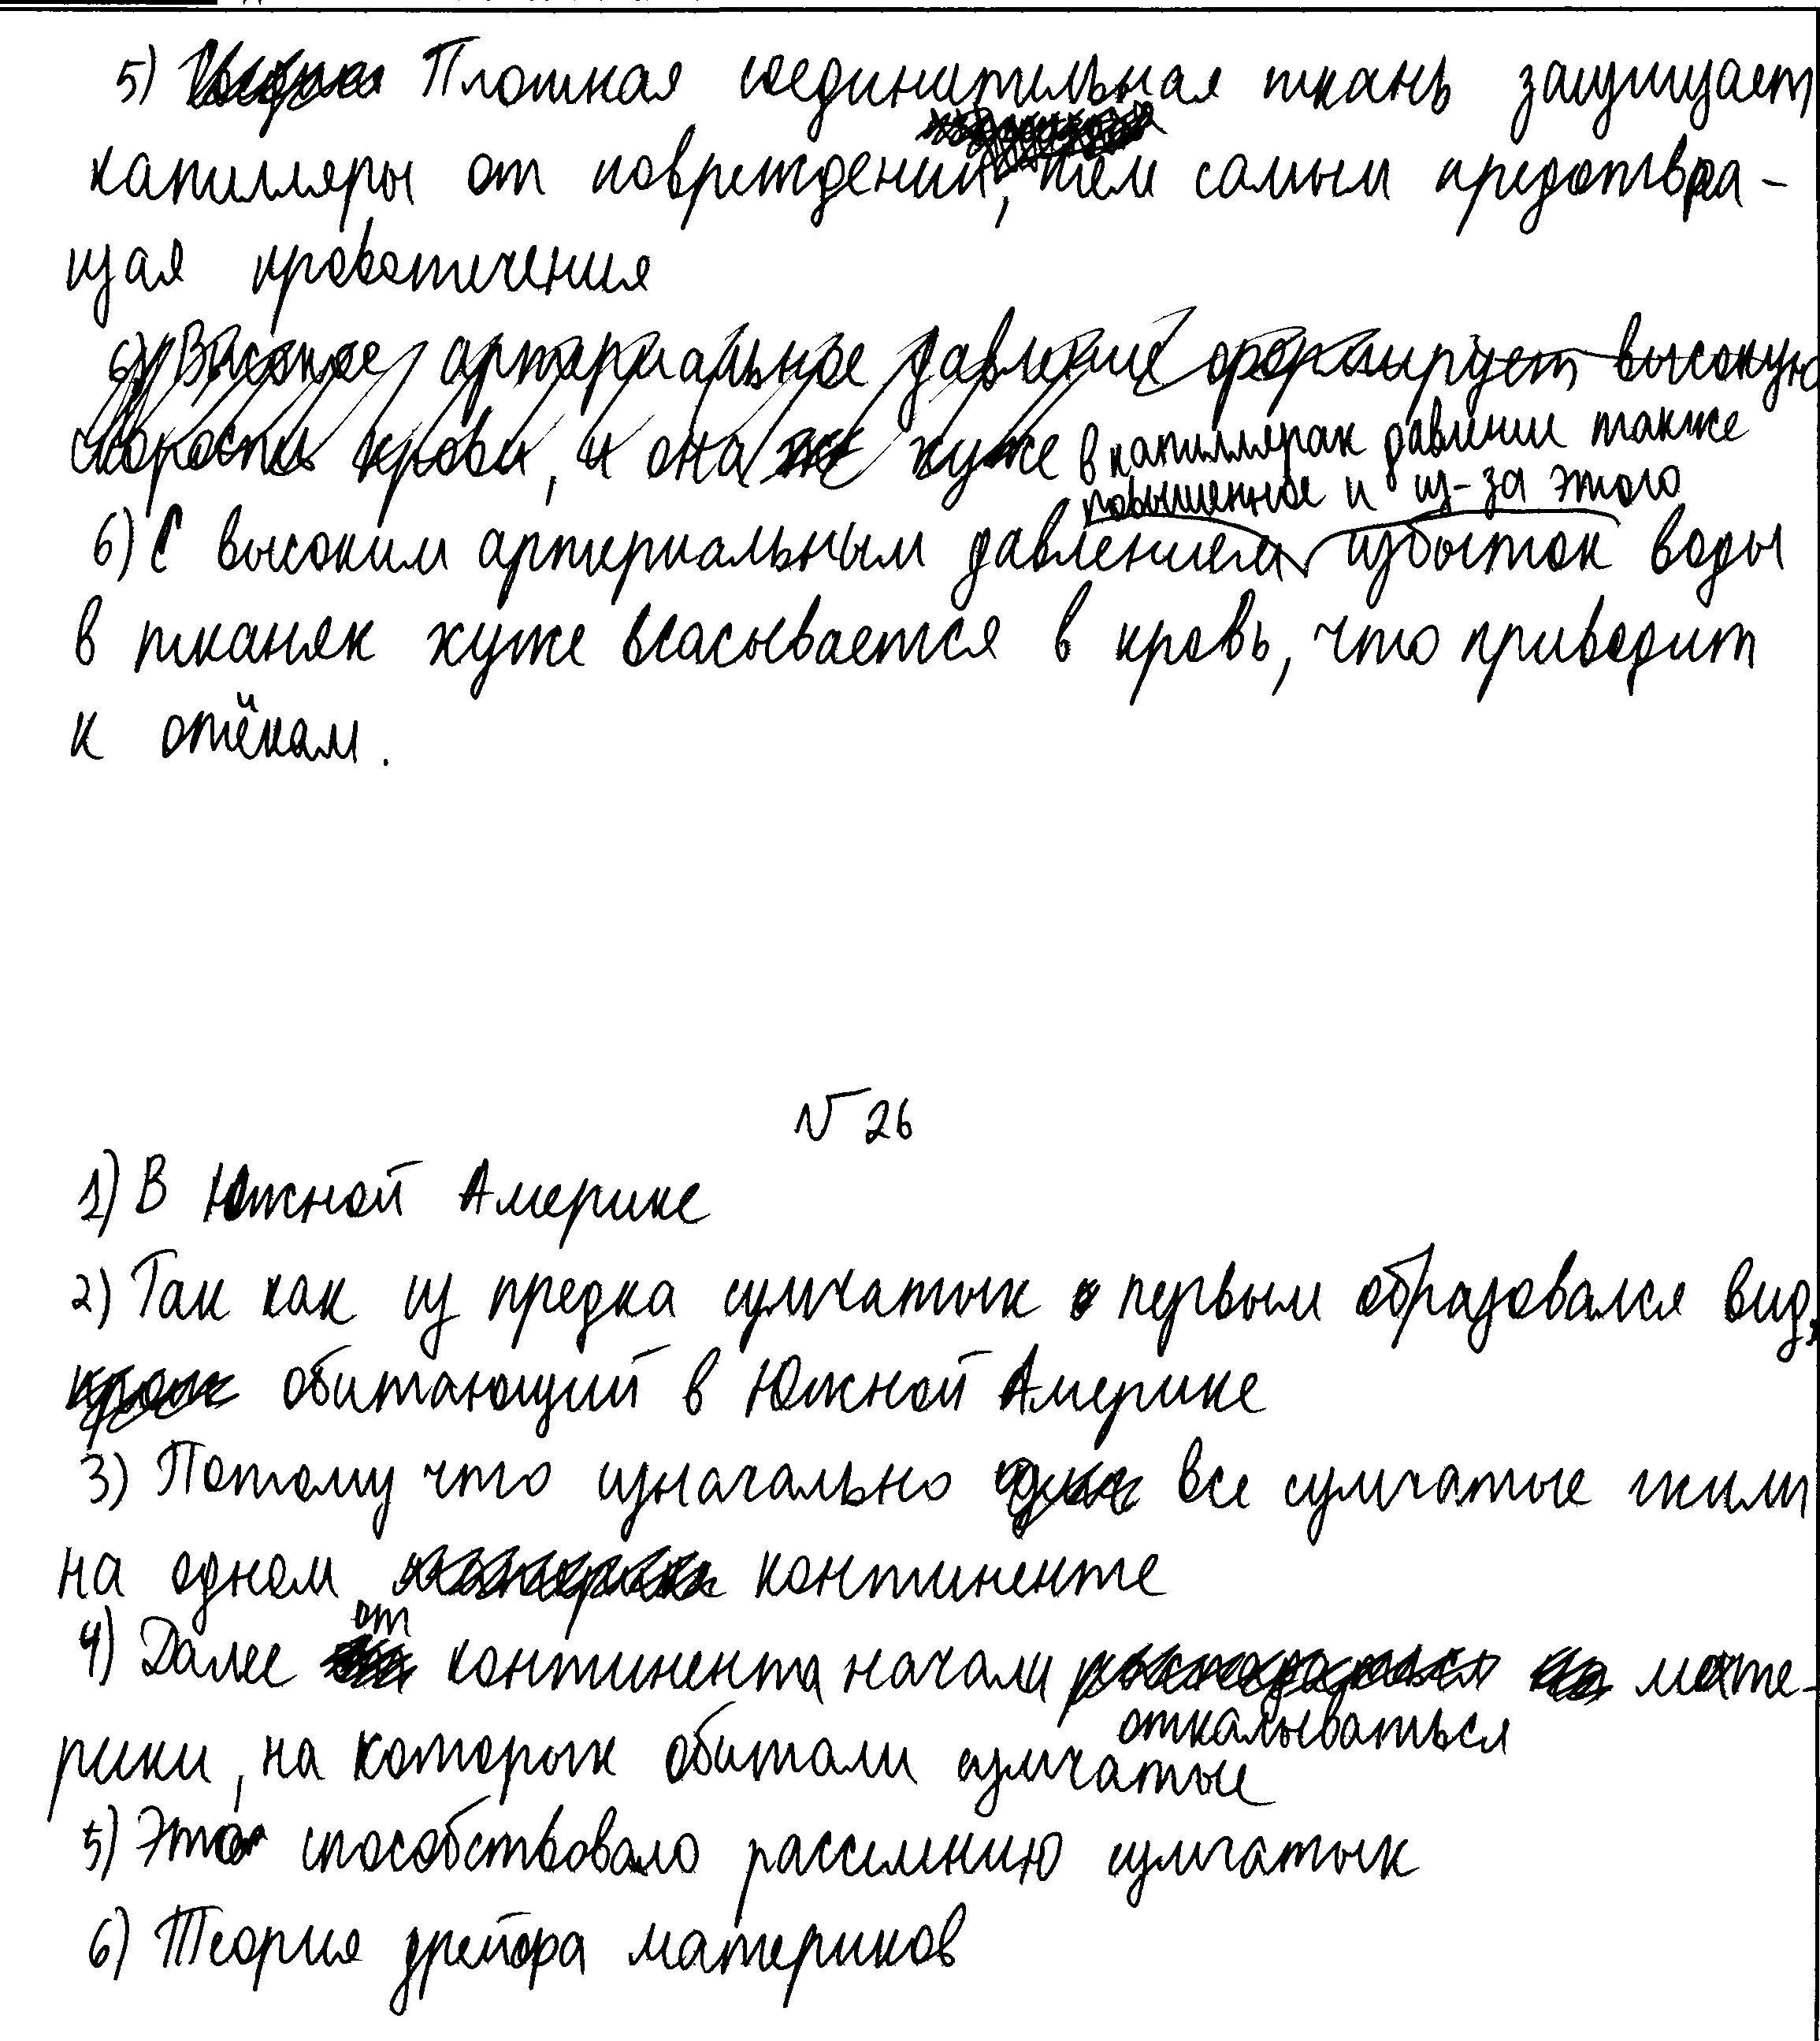 5) Плотная соединительная ткань защищает
капилляры от повреждений, тем самым предотвра-
щая кровотечения
6) Высокое артериальное давление формирует высокую
скорость крови, и она хуже
в капиллярах давление также
повышенное и из-за этого
6) С высоким артериальным давлением, избыток воды
в тканях хуже всасывается в кровь, что приводит
к отёкам.
№ 26
1) В Южной Америке
2) Так как из предка сумчатых первым образовался вид,
обитающий в Южной Америке
3) Потому что изначально все сумчатые жили
на одном континенте
от
4) Далее континента начали мате-
откалываться
рики, на которых обитали сумчатые
5) Это способствовало расселению сумчатых
6) Теория дрейфа материков